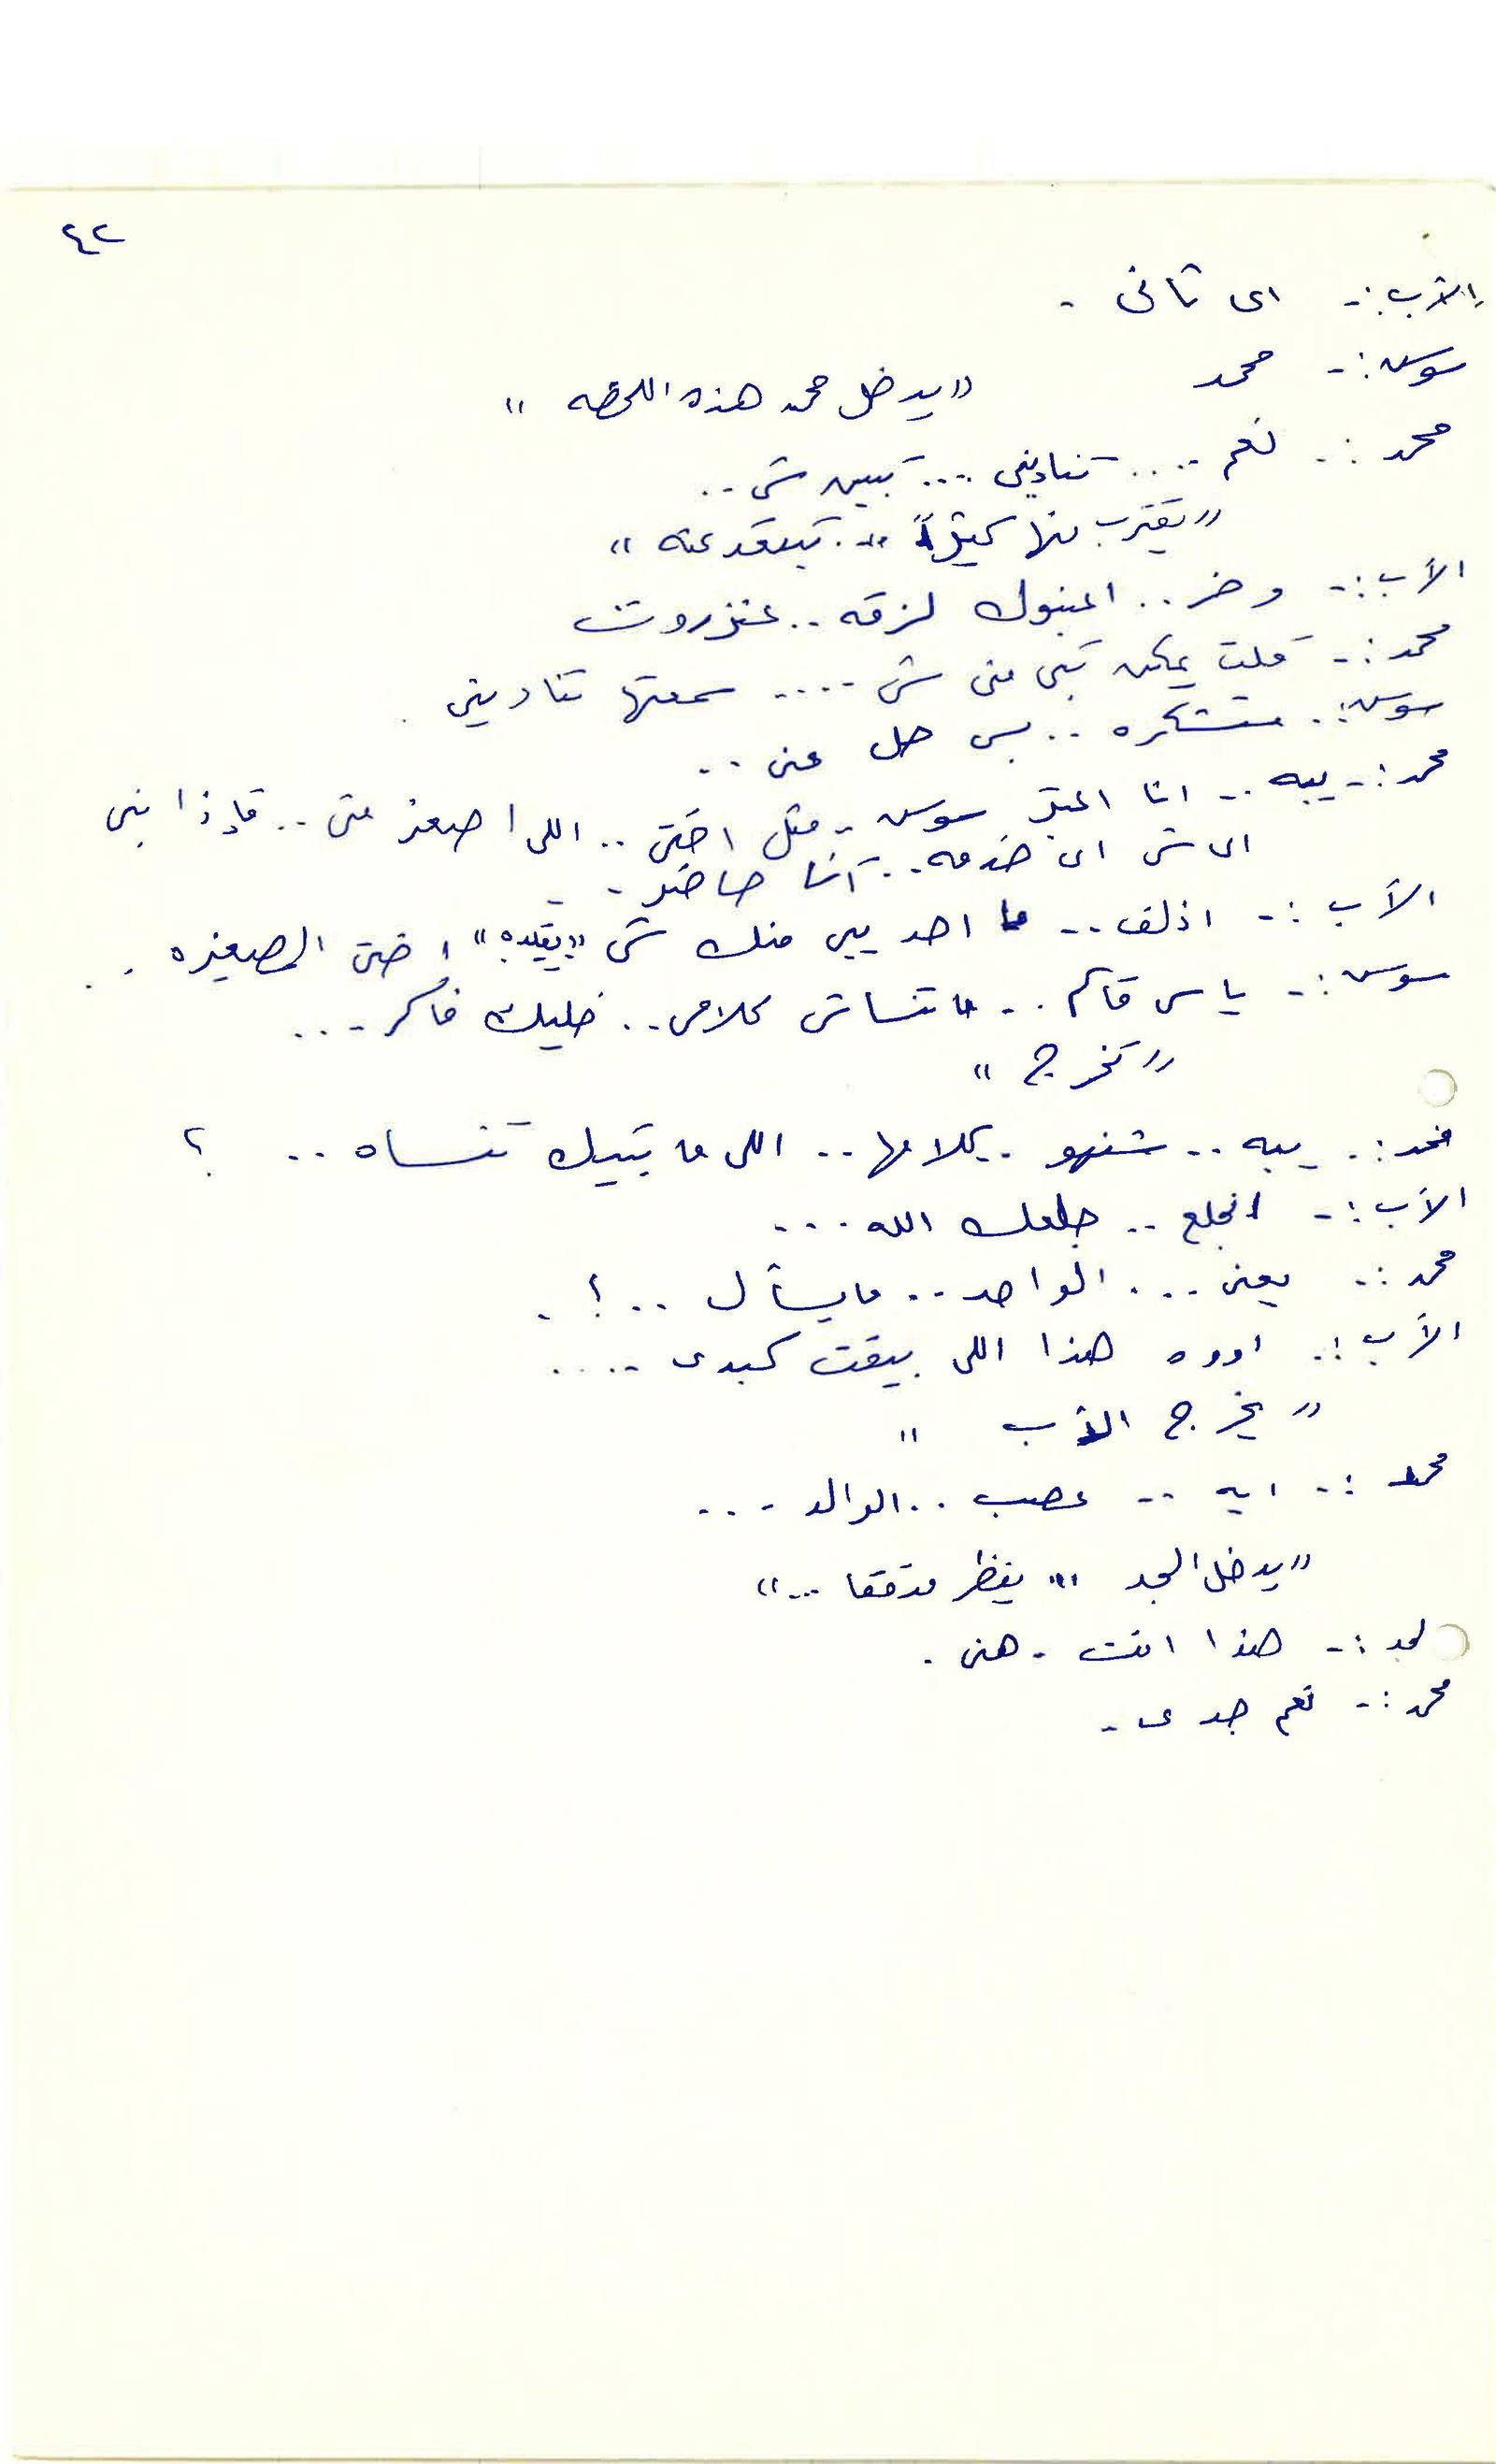 ٤٢
الأب :- اى ثانى .
سوسن :- محمد "يدخل محمد هذه اللحظه"
محمد :- نعم .... تنادينى .... تبين شى ..
"يقترب منها كثيراً .. تبتعد عنه"
الأب :- وخر .. اعنبوك لزقه .. عنزروت
محمد :- قلت يمكن تبى منى شى .... سمعتها تنادينى .
سوسن :- متشكره .. بس حل عنى ..
محمد :- يبه .. انا اعتبر سوسن .. مثل اختى .. اللى اصغر منى .. فإذا تبى
اى شى اى خدمه .. آنا حاضر ..
الأب :- اذلف .. ما احد يبى منك شى "يقلده" اختى الصغيره ..
سوسن :- ياسى قاسم .. ما تنساش كلامى .. خليك فاكر ...
"تخرج"
محمد :- يبه .. شنهو .. كلامها .. اللى ما تبيك تنساه .. ؟
الأب :- انجلع .. جلعك الله ...
محمد :- يعنى ... الواحد .. ما يسأل .. ؟ .
الأب :- اووه هذا اللى بيفت كبدى ....
"يخرج الأب"
محمد :- ايه .. عصب .. الوالد ...
"يدخل الجد .. ينظر مدققا ..."
الجد :- هذا انت . هنى .
محمد :- نعم جدى .